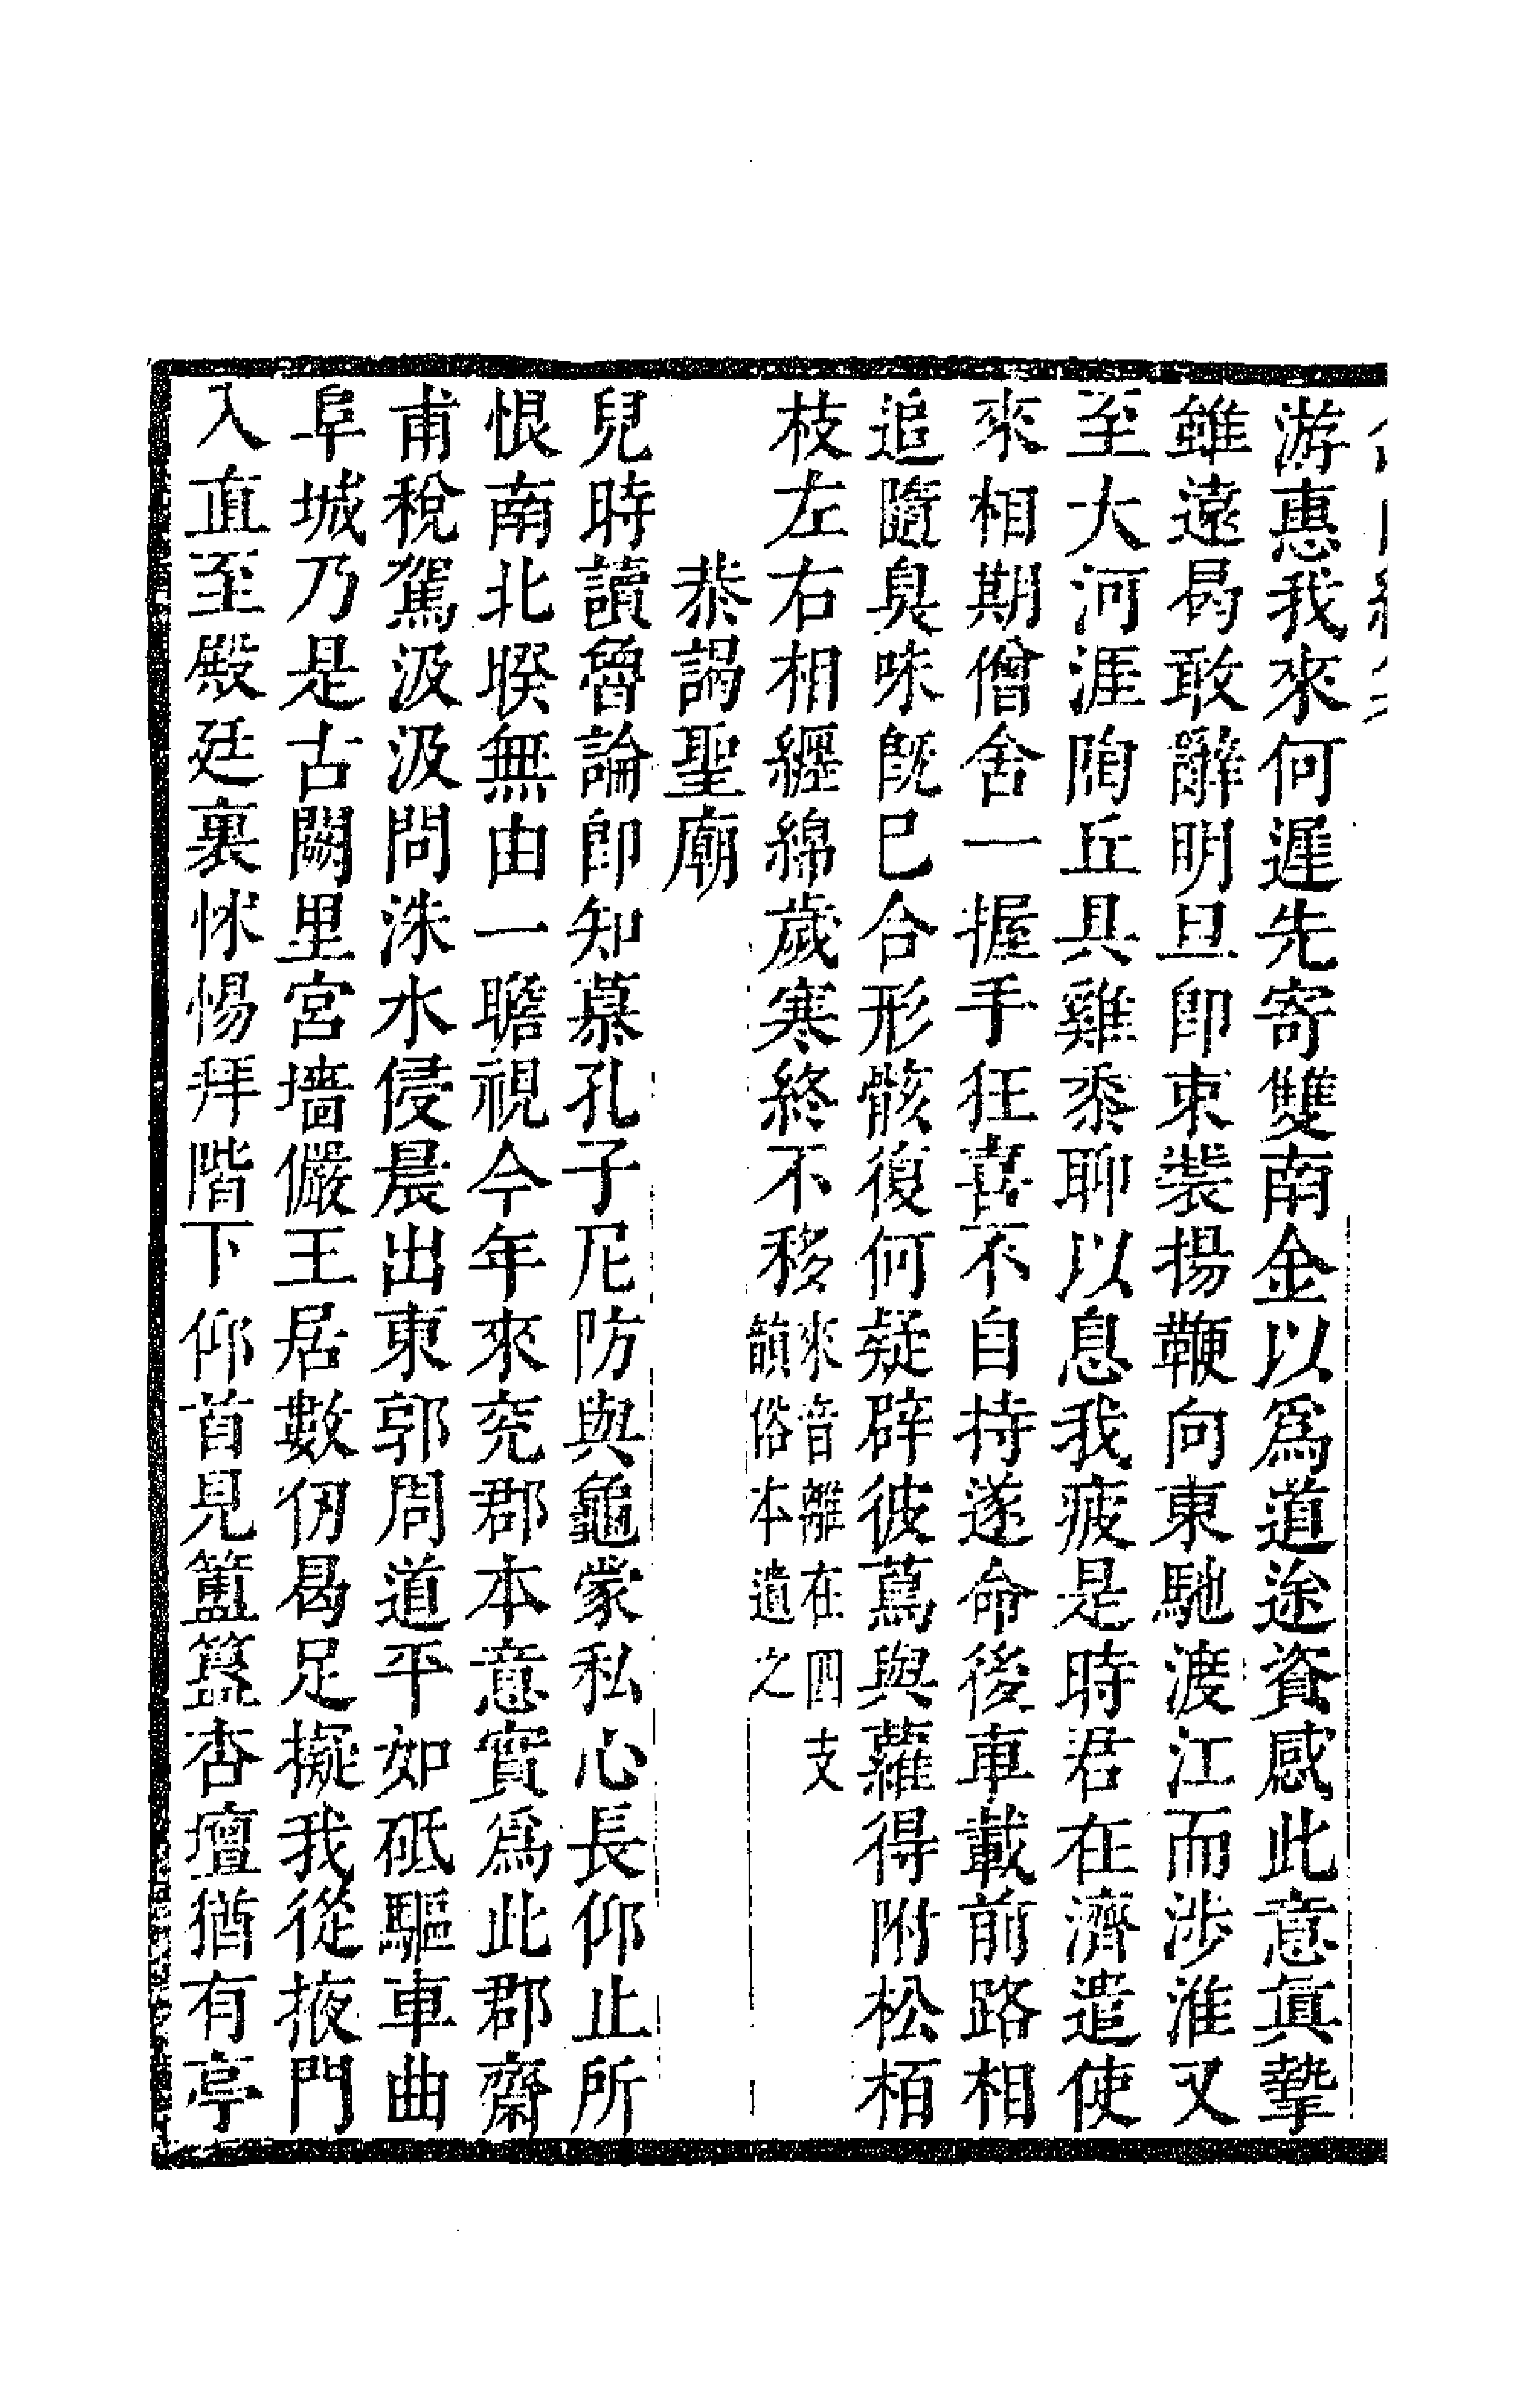 游惠我來何遲先寄雙南金以爲道途資感此意眞摯
雖遠曷敢辭明旦卽束裝揚鞭向東馳渡江而涉淮又
至大河涯陶丘具雞黍聊以息我疲是時君在濟遣使
來相期僧舍一握手狂喜不自持遂命後車載前路相
追隨臭味旣已合形骸復何疑辟彼蔦與蘿得附松栢
枝左右相纒綿歲寒終不移來音離在四支韻俗本遺之
恭謁聖廟
兒時讀魯論卽知慕孔子尼防與龜蒙私心長仰止所
恨南北暌無由一瞻視今年來兖郡本意實爲此郡齋
甫稅駕汲汲問洙水侵晨出東郭周道平如砥驅車曲
阜城乃是古闕里宮墻儼王居數仞曷足擬我從掖門
入直至殿廷裏怵惕拜階下仰首見簠簋杏壇猶有亭